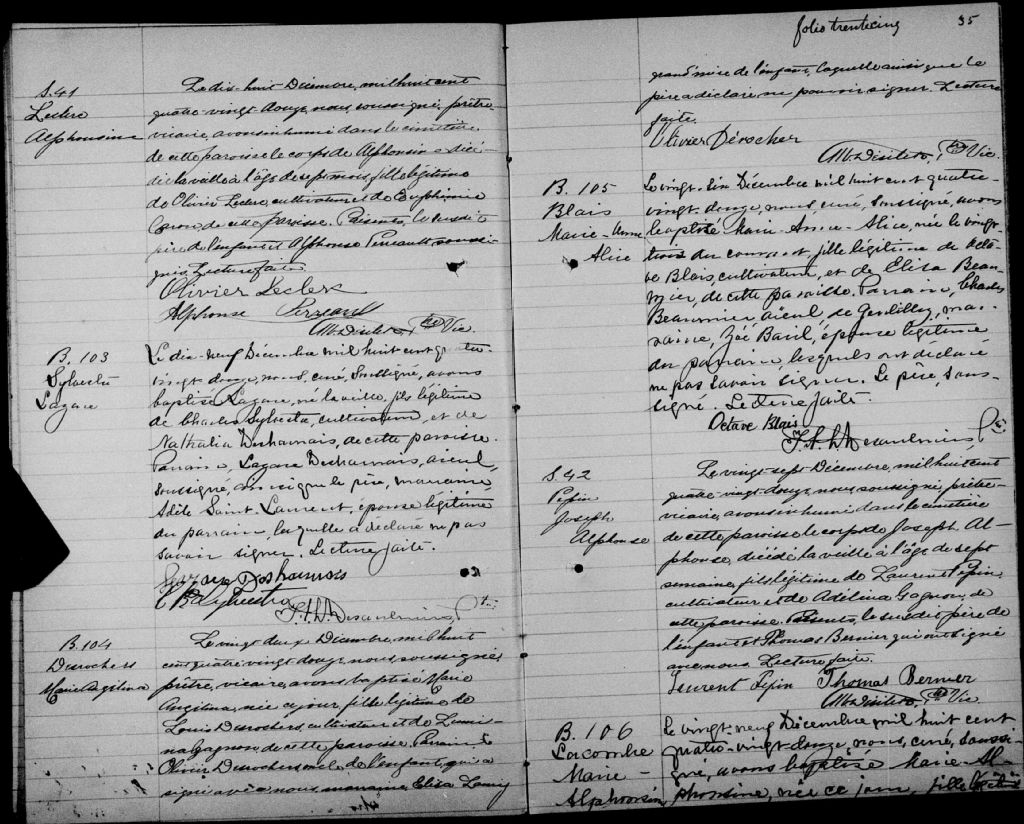 S. 41
Leclerc
Alphonsine
Le dix-huit Décembre, mil huit cent
quatre-vingt-douze, nous, soussigné, prêtre
vicaire, avons inhumé dans le cimetière
de cette paroisse le corps de Alphonsine décé-
dée la veille à l'âge de sept mois, fille légitime
de Olivier Leclerc, cultivateur et de Euphémie
de cette paroisse. Présents, le susdit
père de l'enfant et Alphonse Perreault soussi-
gnés. Lecture faite.
Olivier Leclerc
Alphonse Perreault
Ptre Vic.
B. 103
Sylvestre
Lazare
Le dix-neuf Décembre mil huit cent quatre
vingt-douze, nous, curé, soussigné, avons
baptisé Lazare, né la veille, fils légitime
de Charles Sylvestre, cultivateur, et de
Nathalia Deshamais, de cette paroisse.
Parrain, Lazare Deshamais, aieul,
soussigné, ainsi que le père, marraine
Adèle Saint Laurent, épouse légitime
du parrain laquelle a déclaré ne pas
savoir signer. Lecture faite.
Lazare Deshamais
Sylvestre
Desaulniers, Ptre
B. 104
Desrochers
Marie Angelina
Le vingt deux Décembre, mil huit
cent quatre vingt douze, nous, soussigné,
prêtre, vicaire, avons baptisé Marie
Angelina, née ce jour, fille légitime de
Louis Desrochers, cultivateur et de
Gagnon, de cette paroisse. Parrain,
Olivier Desrochers oncle de l'enfant, qui a
signé avec nous, marraine Elisa Lemay
folio trente cinq 35
grand'mère de l'enfant, laquelle ainsi que le
père a déclaré ne pouvoir signer. Lecture
faite.
Olivier Dérocher
Ptre Vic.
B. 105
Blais
Marie-Anne
Alice
Le vingt-six Décembre mil huit cent quatre-
vingt-douze, nous, curé, soussigné, avons
baptisé Marie-Anne-Alice, née le vingt
trois du courant, fille légitime de Octa-
ve Blais, cultivateur, et de Elisa Beau-
mier, de cette paroisse. Parrain, Charles
Beaumier aieul de Gentilly, mar-
raine, Zoé Baril, épouse légitime
du parrain, lesquels ont déclaré
ne pas savoir signer. Le père, sous-
signé. Lecture faite.
Octave Blais
Desaulniers, Ptre
S. 42
Pepin
Joseph
Alphonse
Le vingt-sept Décembre, mil huit cent
quatre-vingt-douze, nous, soussigné, prêtre-
vicaire, avons inhumé dans le cimetière
de cette paroisse le corps de Joseph Al-
phonse, décédé la veille à l'âge de sept
semaines, fils légitime de Laurent Pepin,
cultivateur et de Adelina Gagnon, de
cette paroisse. Présents, le susdit père de
l'enfant et Thomas Bernier qui ont signé
avec nous. Lecture faite.
Laurent Pepin Thomas Bernier
Ptre Vic.
B. 106
Lacombe
Marie-
Alphonsine
Le vingt-neuf Décembre mil huit cent
quatre-vingt-douze, nous, curé, soussi-
gné, avons baptisé Marie-Al-
phonsine, née ce jour, fille légitime